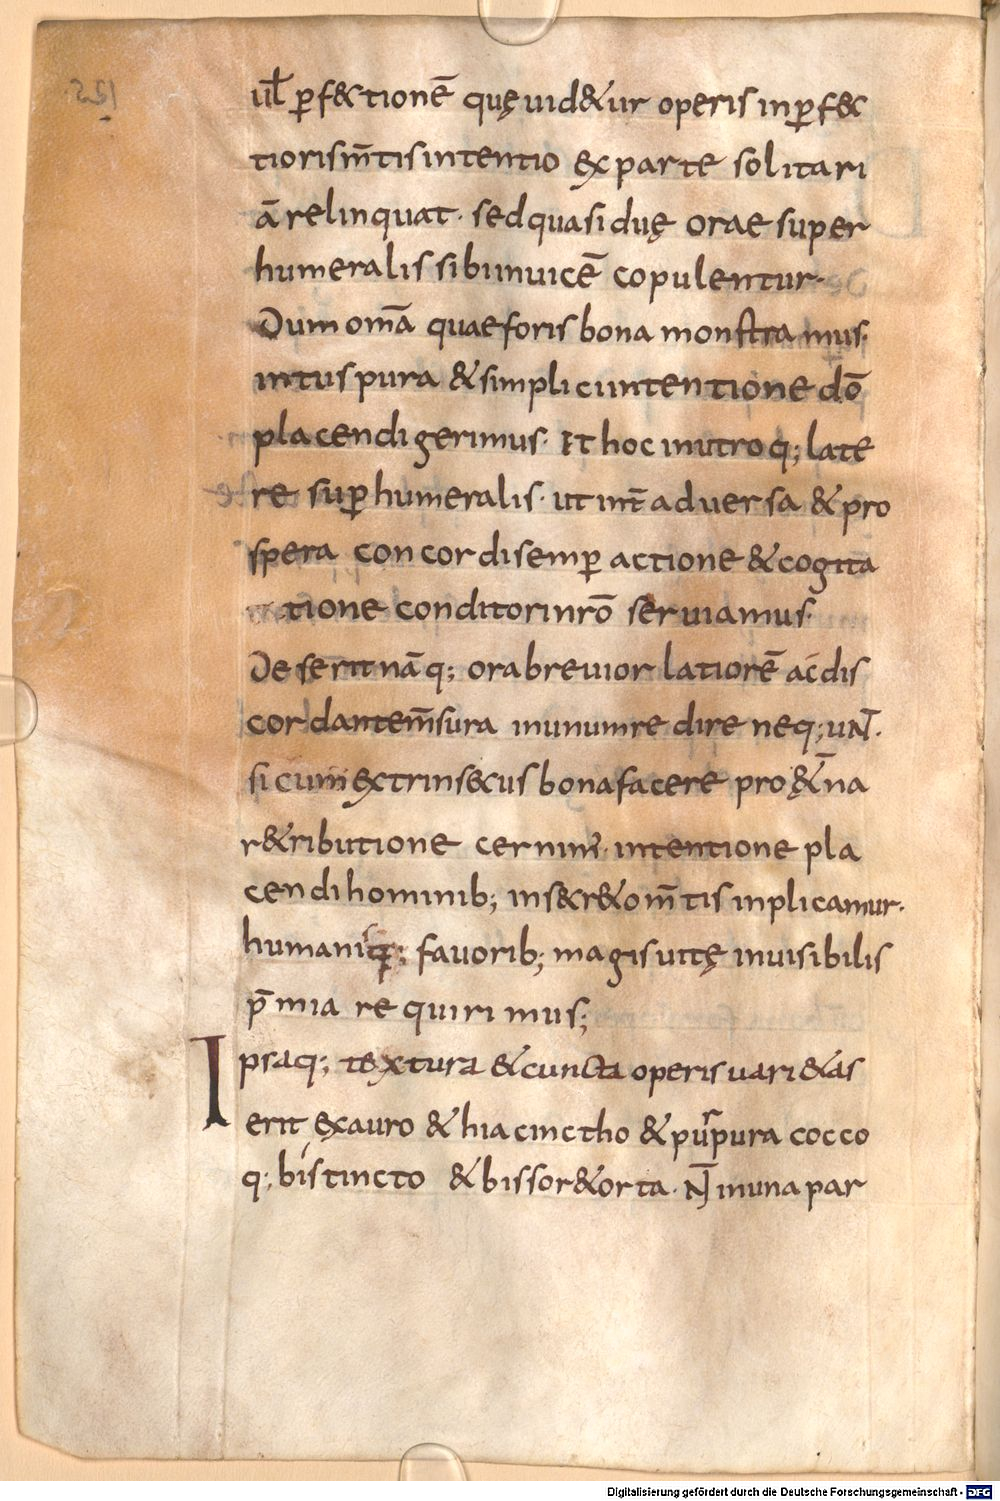 ul̄ ꝑf&tionē quę uid&ur operis inꝑf&c
tioris m̄tis intentio ex parte solitari
ā relinquat· sed quasi duę orae super
humeralis sibi inuicē copulentur·
Dum om̄a quae foris bona monstra mus·
intus pura & simplici intentione dō
placendi gerimus· Et hoc in utroq; late
re suꝑhumeralis· ut int̄ aduersa & pro
spera concordi semꝑ actione & cogita
tione conditori nrō seruiamus·
Deserit nāq; ora breuior latiorē ac dis
cordante m̄sura in unum redire nequeuNT·
si cum extrinsecus bona facere pro &̨na
r&ributione cernim̄· intentione pla
cendi hominib; in secr&o m̄tis inplicamur·
humanisq; fauorib; magis uitę inuisibilis
p̄mia requirimus;
Ipsaq; textura & cuncta operis uari&as
erit ex auro & hiacinctho & purpura cocco
q; bis tincto & bisso r&orta· N̄ in una par